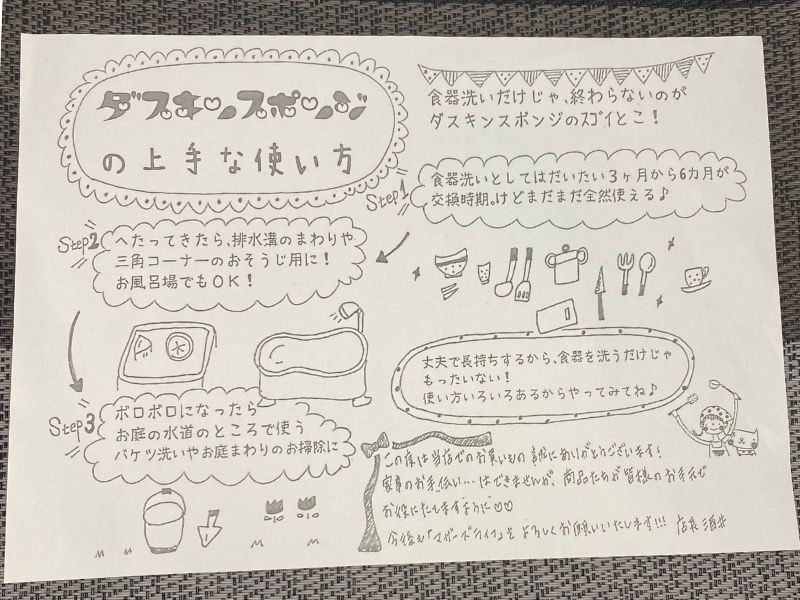 ダスキンスポンジ
の上手な使い方
食器洗いだけじゃ、終わらないのが
ダスキンスポンジのスゴイとこ！
Step1
食器洗いとしてはだいたい3ヶ月から6カ月が
交換時期。けどまだまだ全然使える♪
Step2
へたってきたら、排水溝のまわりや
三角コーナーのおそうじ用に！
お風呂場でもOK！
丈夫で長持ちするから、食器を洗うだけじゃ
もったいない！
使い方いろいろあるからやってみてね♪
Step3
ボロボロになったら
お庭の水道のところで使う
バケツ洗いやお庭まわりのお掃除に
この度は当店でのお買いもの 誠にありがとうございます！
家事のお手伝い…はできませんが、商品たちが皆様のお手元で
お役にたちますように♡♡
今後も「マザーズライフ」をよろしくお願いいたします!!! 店長